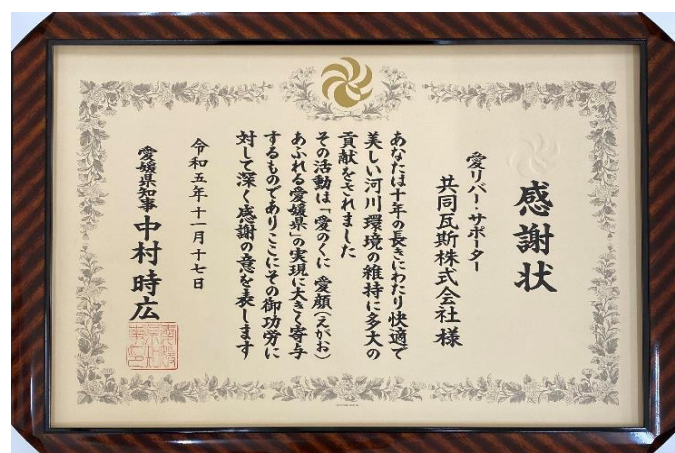 感謝状
愛リバー・サポーター
共同瓦斯株式会社様
あなたは十年の長きにわたり快適で
美しい河川環境の維持に多大の
貢献をされました
その活動は「愛のくに 愛顔(えがお)
あふれる愛媛県」の実現に大きく寄与
するものでありここにその御功労に
対して深く感謝の意を表します
令和五年十一月十七日
愛媛県知事 中村時広